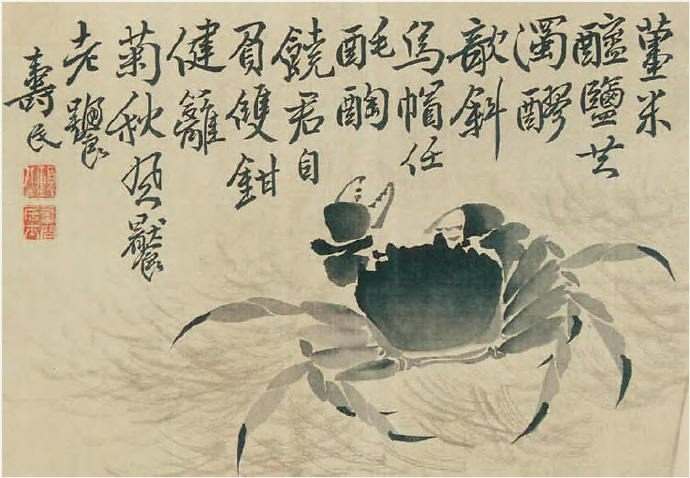 薑米
醯鹽共
濁醪
欹斜
烏帽任
酕醄
饒君自
負雙鉗
健籬
菊秋風饜
老饕
壽民